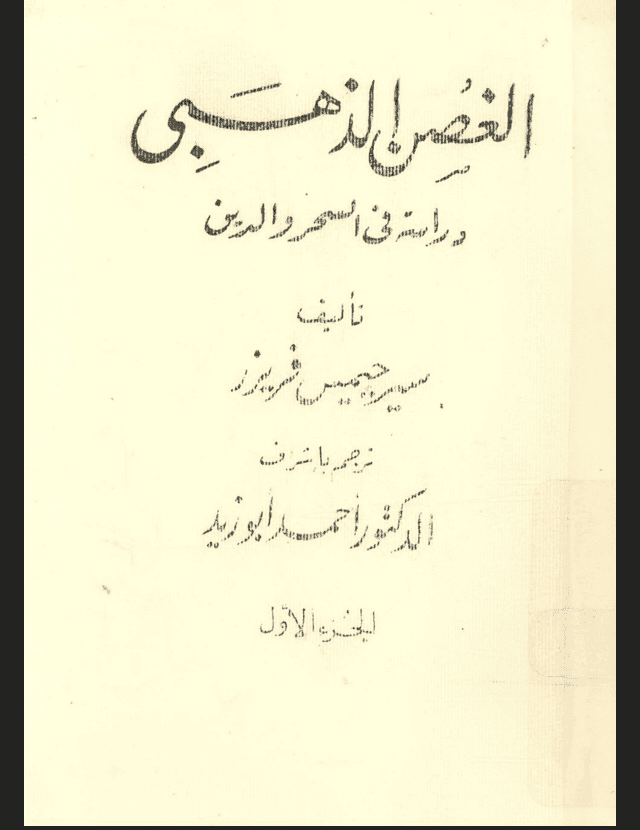 الغُصن الذهبى
دراسة فى السحر والدين
تأليف
سير جيمس فريزر
ترجم باشراف
الدكتور أحمد أبو زيد
الجُزء الأوّل